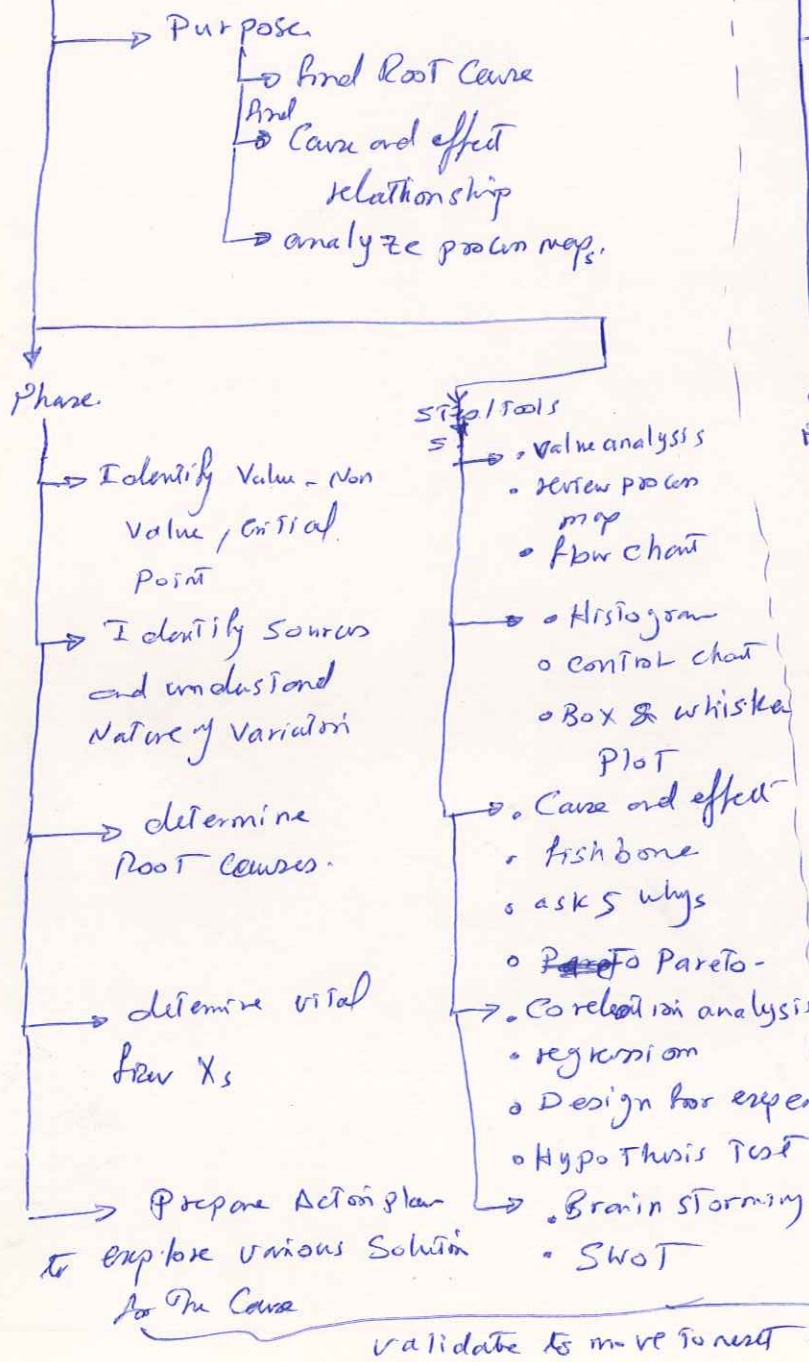 Purpose.
find Root Cause
find
Cause and effect
relathionship
analyze process maps.
Phase.
Identify Value - Non
Value, Critical
Point
Identify Sources
and understand
Nature of Variation
determine
Root Causes.
determine vital
few Xs
Prepare Action plan
to explore various Solution
for The Cause
Tools
value analysis
review process
map
flow chart
Histogram
control chart
Box & whisker
Plot
Cause and effect
fishbone
ask 5 whys
Pareto -
Corelation analysis
regression
Design for exper
Hypothesis Test
Brain storming
SWOT
validate to move to next